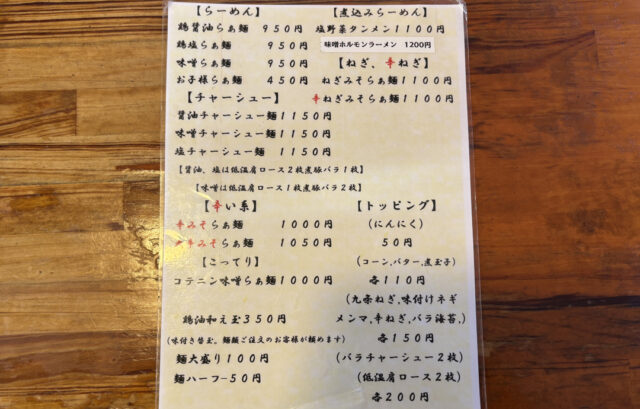 【らーめん】
鶏醤油らぁ麺 950円
鶏塩らぁ麺 950円
味噌らぁ麺 950円
お子様らぁ麺 450円
【チャーシュー】
醤油チャーシュー麺1150円
味噌チャーシュー麺1150円
塩チャーシュー麺1150円
【醤油、塩は低温肩ロース2枚煮豚バラ1枚】
【味噌は低温肩ロース1枚煮豚バラ2枚】
【辛い系】
辛みそらぁ麺 1000円
辛みそらぁ麺 1050円
【こってり】
コテニン味噌らぁ麺1000円
鶏油和え玉350円
(味付き替玉。麺類ご注文のお客様が頼めます)
麺大盛り100円
麺ハーフ-50円
【煮込みらーめん】
塩野菜タンメン1100円
味噌ホルモンラーメン 1200円
【ねぎ、辛ねぎ】
ねぎみそらぁ麺1100円
辛ねぎみそらぁ麺1100円
【トッピング】
(にんにく)
50円
(コーン,バター,煮玉子)
各110円
(九条ねぎ,味付けネギ
メンマ,辛ねぎ,バラ海苔,)
各150円
(バラチャーシュー2枚)
(低温肩ロース2枚)
各200円